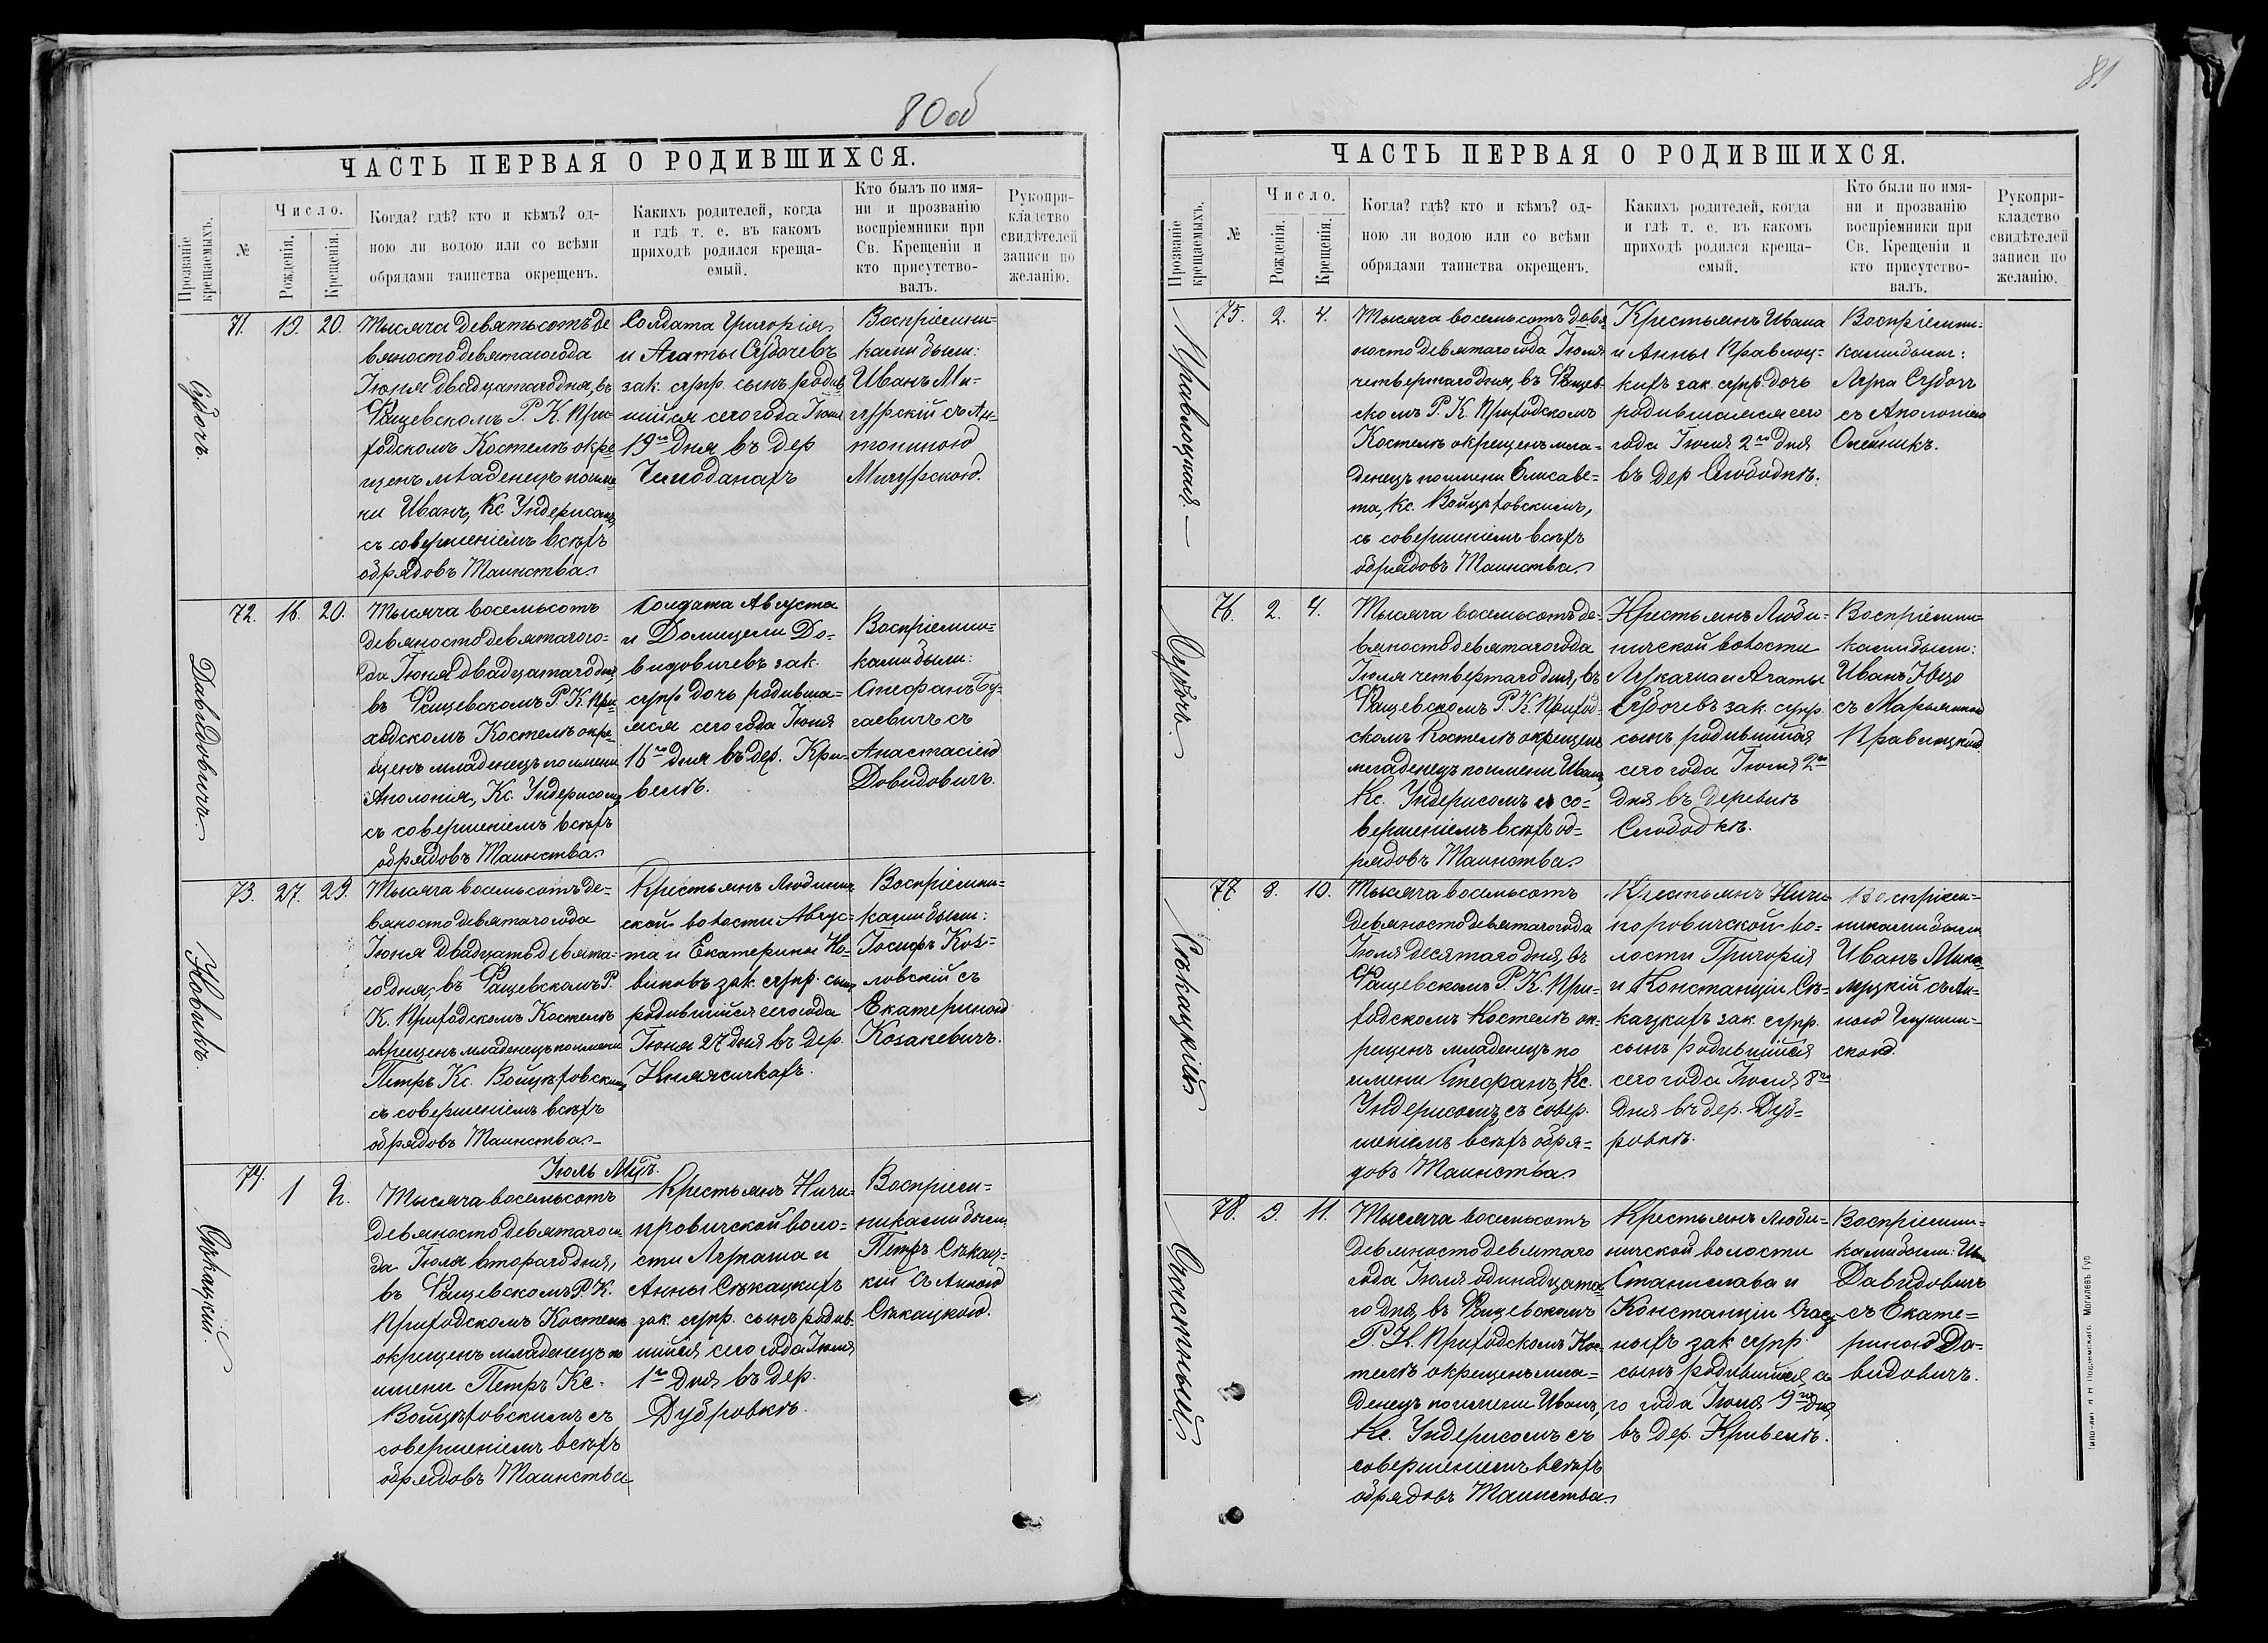 80 об
ЧАСТЬ ПЕРВАЯ О РОДИВШИХСЯ.
Прозваніе крещаемыхъ.
№
Число.
Рожденія.
Крещенія.
Когда? гдѣ? кто и кѣмъ? од-
ною ли водою или со всѣми
обрядами таинства окрещенъ.
Какихъ родителей, когда
и гдѣ т. е. въ какомъ
приходѣ родился креща-
емый.
Кто былъ по имя-
ни и прозванію
воспріемники при
Св. Крещеніи и
кто присутство-
валъ.
Рукопри-
кладство
свидѣтелей
записи по
желанію.
Субочъ.
71. 19. 20.
Тысяча девятьсотъ де
вяносто девятаго года
Іюня двадцатаго дня, въ
Фащевскомъ Р. К. При-
ходскомъ Костелѣ окре-
щенъ младенецъ по име-
ни Иванъ, Кс. Ундерисомъ,
съ совершеніемъ всѣхъ
обрядовъ Таинства.
Солдата Григорія
и Агаты Субочевъ
зак. супр. сынъ родив
шійся сего года Іюня
19го дня въ дер
Чемоданахъ
Воспріемни-
ками были:
Иванъ Ми-
гурскій съ Ан-
тониною
Мигурскою.
Давидовичъ.
72. 16. 20.
Тысяча восемьсотъ
девяносто девятаго го-
да Іюня двадцатаго дня,
въ Фащевскомъ Р. К. При-
ходскомъ Костелѣ окре-
щенъ младенецъ по имени
Аполонія, Кс. Ундерисомъ,
съ совершеніемъ всѣхъ
обрядовъ Таинства.
Солдата Августа
и Домицели До-
видовичевъ зак.
супр дочь родивша-
яся сего года Іюня
16го дня въ дер. Кри-
велѣ.
Воспріемни-
ками были:
Стефанъ Бу-
гаевичъ съ
Анастасіею
Довидовичъ.
Новикъ.
73. 27. 29.
Тысяча восемьсотъ де-
вяносто девятаго года
Іюня двадцать девята-
го дня, въ Фащевскомъ Р.
К. Приходскомъ Костелѣ
окрещенъ младенецъ по имени
Петръ Кс. Войцѣховскимъ,
съ совершеніемъ всѣхъ
обрядовъ Таинства.
Крестьянъ Любинич
ской волости Авгус-
та и Екатерины Но-
виковъ зак. супр. сынъ
родившійся сего года
Іюня 27 дня въ дер.
Воспріемни-
ками были:
Іосифъ Коз-
ловскій съ
Екатериною
Козакевичъ.
Іюль Мцъ.
Сѣкацкій.
74. 1 2.
Тысяча восемьсотъ
девяносто девятаго го-
да Іюля втораго дня,
въ Фащевскомъ Р. К.
Приходскомъ Костелѣ
окрещенъ младенецъ по
имени Петръ Кс.
Войцѣховскимъ съ
совершеніемъ всѣхъ
обрядовъ Таинства
Крестьянъ Ничи-
провичской воло-
сти Лукаша и
Анны Сѣкацкихъ
зак. супр. сынъ родив-
шійся сего года Іюля
1го дня въ дер.
Дубровкѣ.
Воспріем-
никами были
Петръ Сѣкац-
кій съ Анною
Сѣкацкою.
81
ЧАСТЬ ПЕРВАЯ О РОДИВШИХСЯ.
Прозваніе крещаемыхъ.
№
Число.
Рожденія.
Крещенія.
Когда? гдѣ? кто и кѣмъ? од-
ною ли водою или со всѣми
обрядами таинства окрещенъ.
Какихъ родителей, когда
и гдѣ т. е. въ какомъ
приходѣ родился креща-
емый.
Кто были по имя-
ни и прозванію
воспріемники при
Св. Крещеніи и
кто присутство-
валъ.
Рукопри-
кладство
свидѣтелей
записи по
желанію.
Правлоцкая.
75. 2. 4.
Тысяча восемьсотъ девя
носто девятаго года Іюля
четвертаго дня, въ Фащев-
скомъ Р. К. Приходскомъ
Костелѣ окрещенъ мла-
денецъ по имени Елисаве-
та, Кс. Войцѣховскимъ,
съ совершеніемъ всѣхъ
обрядовъ Таинства.
Крестьянъ Ивана
и Анны Правлоц-
кихъ зак. супр дочь
родившаяся сего
года Іюля 2го дня
въ дер Слободкѣ.
Воспріемни-
ками были:
Лука Субочъ
съ Аполоніею
Олейникъ.
Субочъ.
76. 2. 4.
Тысяча восемьсотъ де-
вяносто девятаго года
Іюля четвертаго дня, въ
Фащевскомъ Р. К. Приход-
скомъ Костелѣ окрещенъ
младенецъ по имени Иванъ,
Кс. Ундерисомъ съ со-
вершеніемъ всѣхъ об-
рядовъ Таинства.
Крестьянъ Люби-
ничской волости
Лукаша и Агаты
Субочевъ зак. супр.
сынъ родившійся
сего года Іюля 2го
дня въ деревнѣ
Слободкѣ.
Воспріемни-
ками были:
Иванъ
съ Марьянною
Правлоцкою.
Сѣкацкій
77. 8. 10.
Тысяча восемьсотъ
девяносто девятаго года
Іюля десятаго дня, въ
Фащевскомъ Р. К. При-
ходскомъ Костелѣ ок-
рещенъ младенецъ по
имени Стефанъ, Кс.
Ундерисомъ, съ совер-
шеніемъ всѣхъ обря-
довъ Таинства.
Крестьянъ Ничи-
поровичской во-
лости Григорія
и Констанціи Сѣ-
кацкихъ зак. супр.
сынъ родившійся
сего года Іюля 8го
дня въ дер. Дуб-
ровкѣ.
Воспріем-
никами были
Иванъ
съ Ан-
ною
скою.
Счасный.
78. 9. 11.
Тысяча восемьсотъ
девяносто девятаго
года Іюля одинадцата-
го дня, въ Фащевскомъ
Р. К. Приходскомъ Кос-
телѣ окрещенъ мла-
денецъ по имени Иванъ,
Кс. Ундерисомъ съ
совершеніемъ всѣхъ
обрядовъ Таинства.
Крестьянъ Люби-
ничской волости
Станислава и
Констанціи Счас-
ныхъ зак супр.
сынъ родившійся се-
го года Іюля 9го дня
въ дер. Кривелѣ.
Воспріемни-
ками были:
Давидовичъ
съ Екате-
риною Да-
видовичъ.
Могилевъ Губ